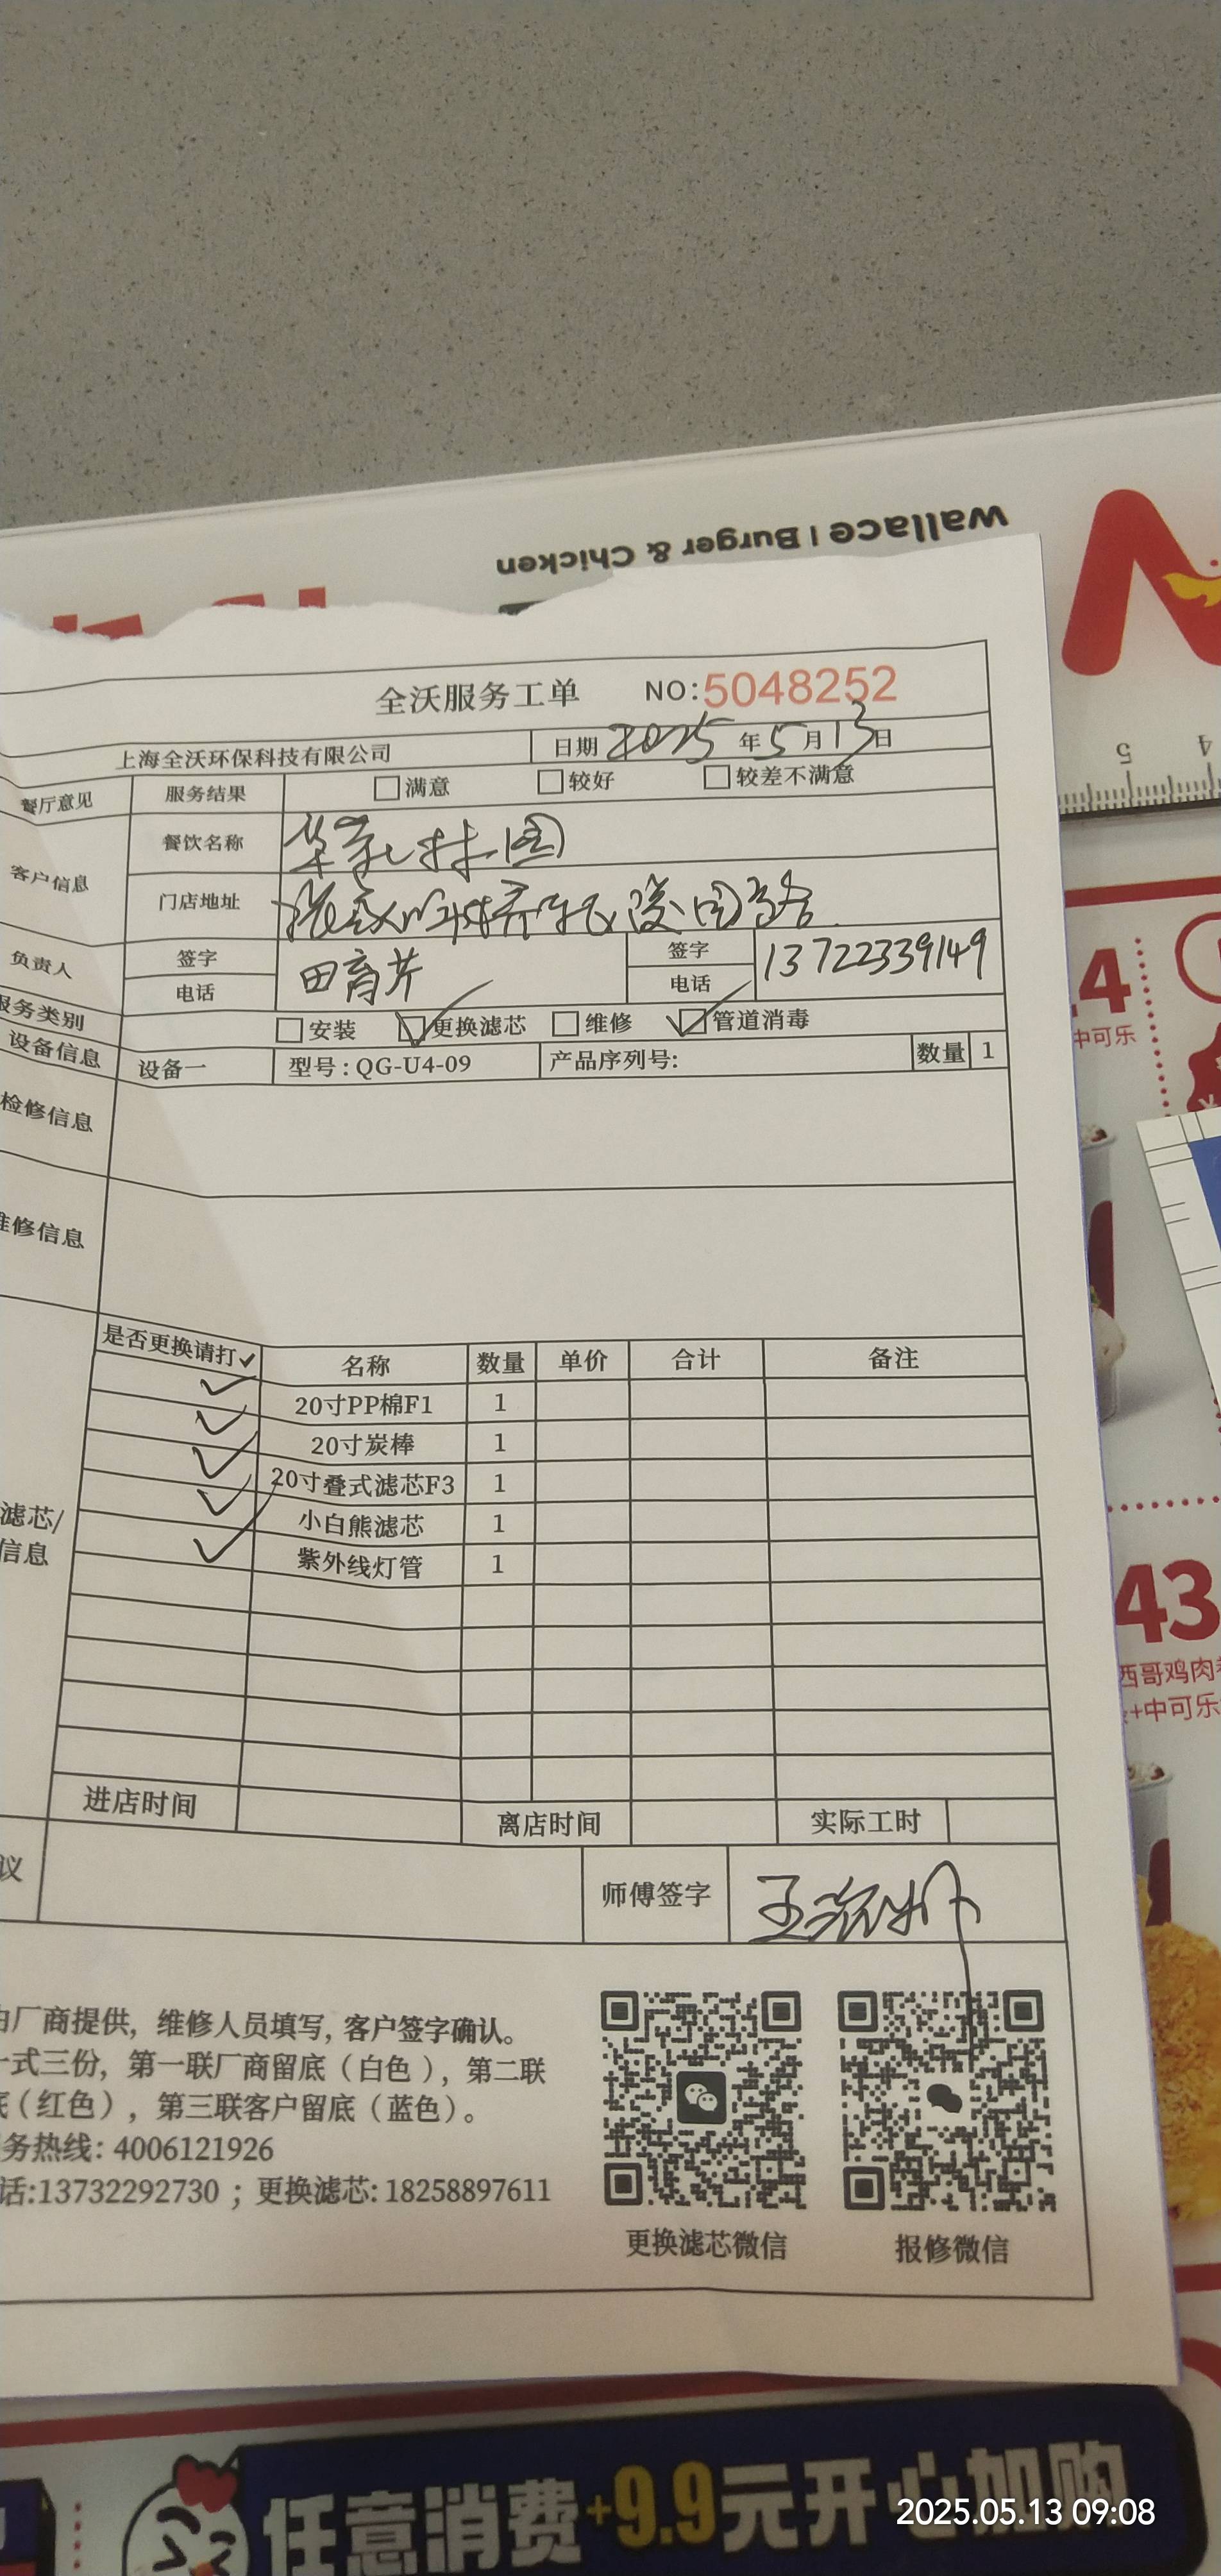 wallace | Burger & Chicken
全沃服务工单 NO:5048252
上海全沃环保科技有限公司 日期 2025 年 5 月 13 日
餐厅意见 服务结果 满意 较好 较差不满意
客户信息 餐饮名称
门店地址
负责人 签字 电话 田育芹 签字 电话 13722339149
服务类别 安装 更换滤芯 维修 管道消毒
设备信息 设备一 型号:QG-U4-09 产品序列号: 数量 1
检修信息
维修信息
是否更换请打✓ 名称 数量 单价 合计 备注
✓ 20寸PP棉F1 1
✓ 20寸炭棒 1
✓ 20寸叠式滤芯F3 1
✓ 小白熊滤芯 1
✓ 紫外线灯管 1
滤芯/
信息
进店时间 离店时间 实际工时
议 师傅签字
由厂商提供, 维修人员填写, 客户签字确认。
一式三份, 第一联厂商留底(白色), 第二联
底(红色), 第三联客户留底(蓝色)。
务热线: 4006121926
话:13732292730 ; 更换滤芯: 18258897611
更换滤芯微信 报修微信
5 4
4
中可乐
43
西哥鸡肉
+中可乐
任意消费+9.9元开心加购
2025.05.13 09:08